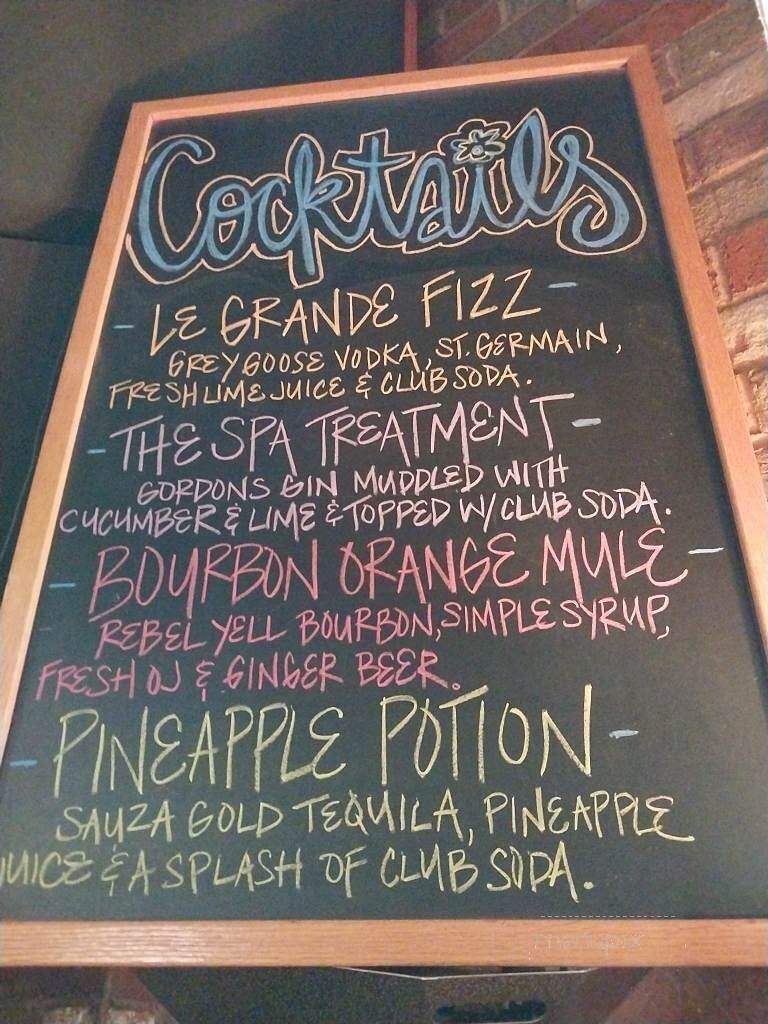 Cocktails
- LE GRANDE FIZZ -
GREY GOOSE VODKA, ST. GERMAIN,
FRESH LIME JUICE & CLUB SODA.
- THE SPA TREATMENT -
GORDONS GIN MUDDLED WITH
CUCUMBER & LIME & TOPPED W/ CLUB SODA.
- BOURBON ORANGE MULE -
REBEL YELL BOURBON, SIMPLE SYRUP,
FRESH OJ & GINGER BEER.
- PINEAPPLE POTION -
SAUZA GOLD TEQUILA, PINEAPPLE
JUICE & A SPLASH OF CLUB SODA.